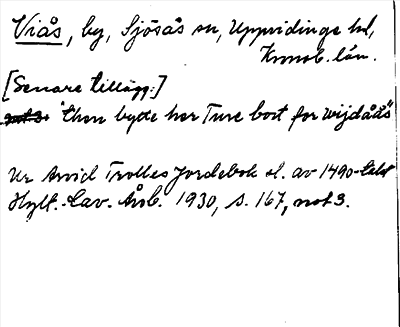 Viås, by, Sjösås sn, Uppvidinge hd,
Kronob. län.
[Senare tillägg:]
not 3. "Thon bytte her Ture bort for wijdåås"
Ur Arvid Trolles Jordebok sl. av 1490-talet
Hylt.-Cav. Årsb. 1930, s. 167, not 3.